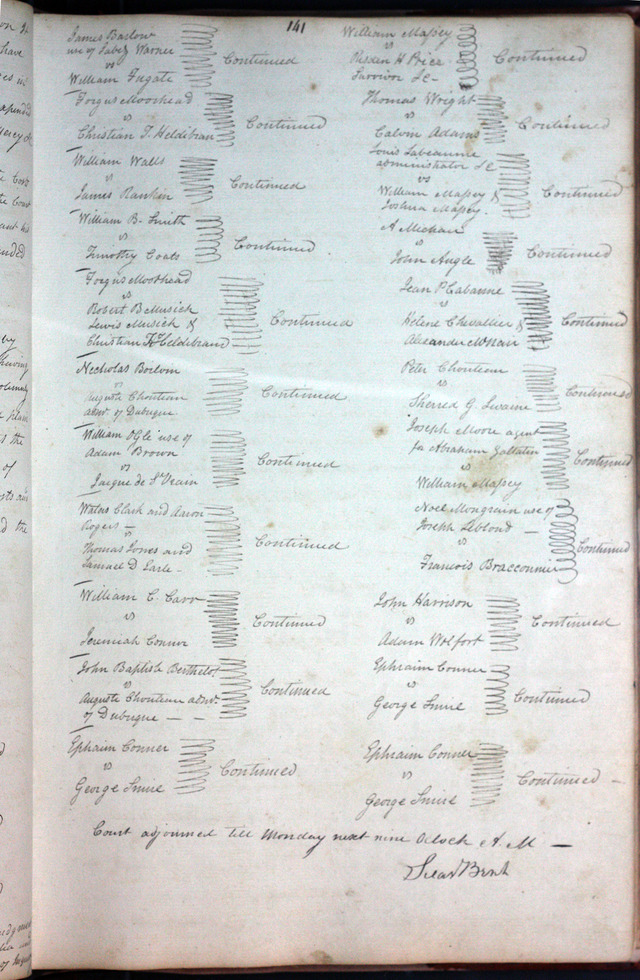 141
James Barlow
use of Jabez Warner
vs
William Fugate
Continued
Fergus Moorhead
vs
Christian F. Heldibran
Continued
William Walls
vs
James Rankin
Continued
William B. Smith
vs
Timothy Coats
Continued
Fergus Moorhead
vs
Robert B Musick
Lewis Musick &
Christian F. Heldibrand
Continued
Necholas Boelom
vs
Auguste Chouteau
admr. of Dubuque
Continued
William Ogle use of
Adam Brown
vs
Jacque de St Vrain
Continued
Clark and Aaron
Rogers —
vs
Thomas Jones and
Samuel D Earle -
Continued
William C. Carr
vs
Jeremiah Connor
Continued
John Baptiste Berthelot
vs
Auguste Chouteau admr.
of Dubuque — —
Continued
Ephaim Conner
vs
George Smire
Continued
William Massey
vs
Risdon H Price
Survivor &c -
Continued
Thomas Wright
vs
Calvin Adams
Continued
Louis Labeaume
administrator &c
vs
William Massey &
Joshua Massey.
Continued
A Michau
vs
John Angle
Continued
Jean P Cabanne
vs
Helene Chevallier &
Alexander McNair
Continued
Peter Chouteau
vs
Sherred G. Swaine
Continued
Joseph Moore agent
for Abraham Gallatin
vs
William Massey
Continued
Noel Mongrain use of
Joseph Leblond —
vs
Francois Bracconnier
Continued
John Harrison
vs
Adam Wolfort
Continued
Ephraim Conner
vs
George Smire
Continued
Ephraim Conner
vs
George Smire
Continued -
Court adjourned till Monday next nine Oclock A. M —
Silas Bent